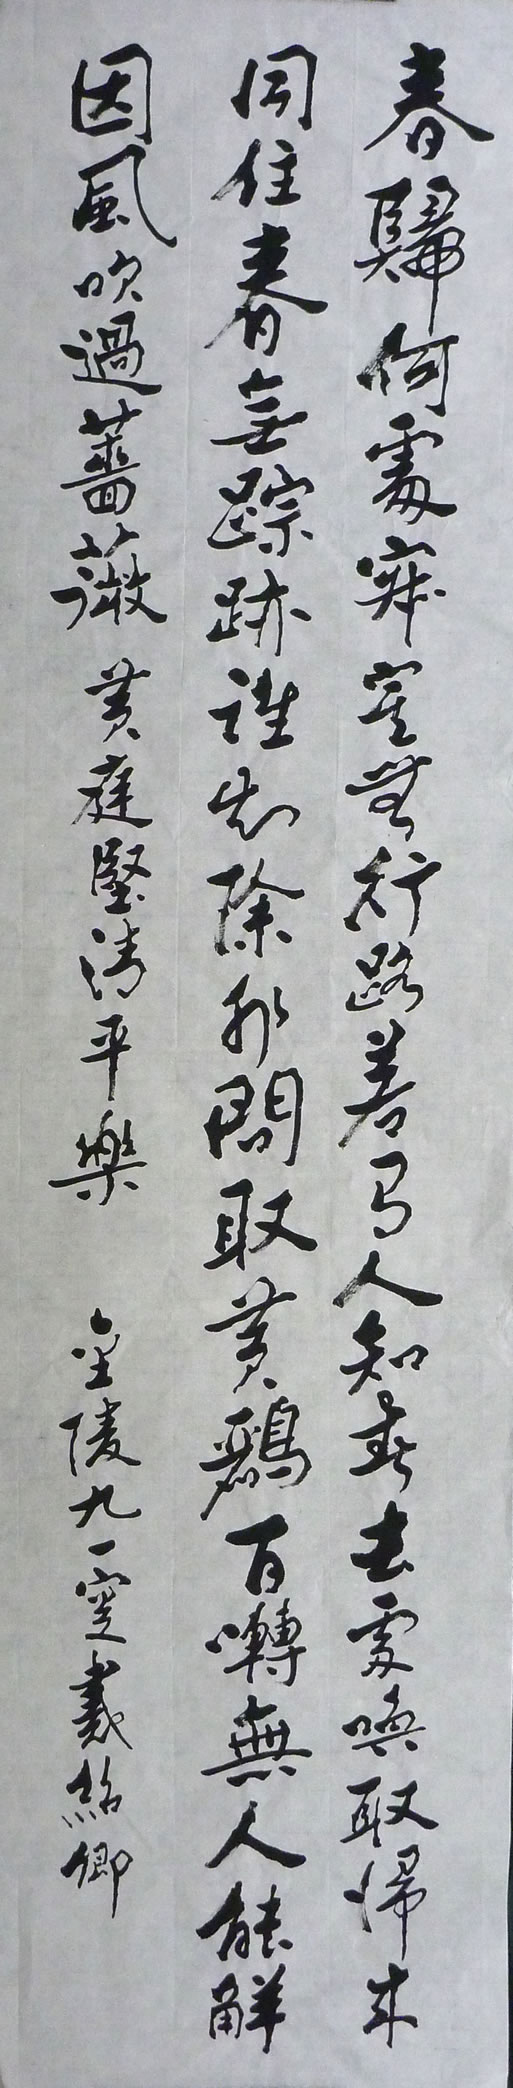 春歸何處寂寞無行路若有人知春去處喚取歸來
同住春無踪跡誰知除非問取黄鸝百囀無人能解
因風吹過薔薇 黄庭堅清平樂 金陵九一叟戴紹卿